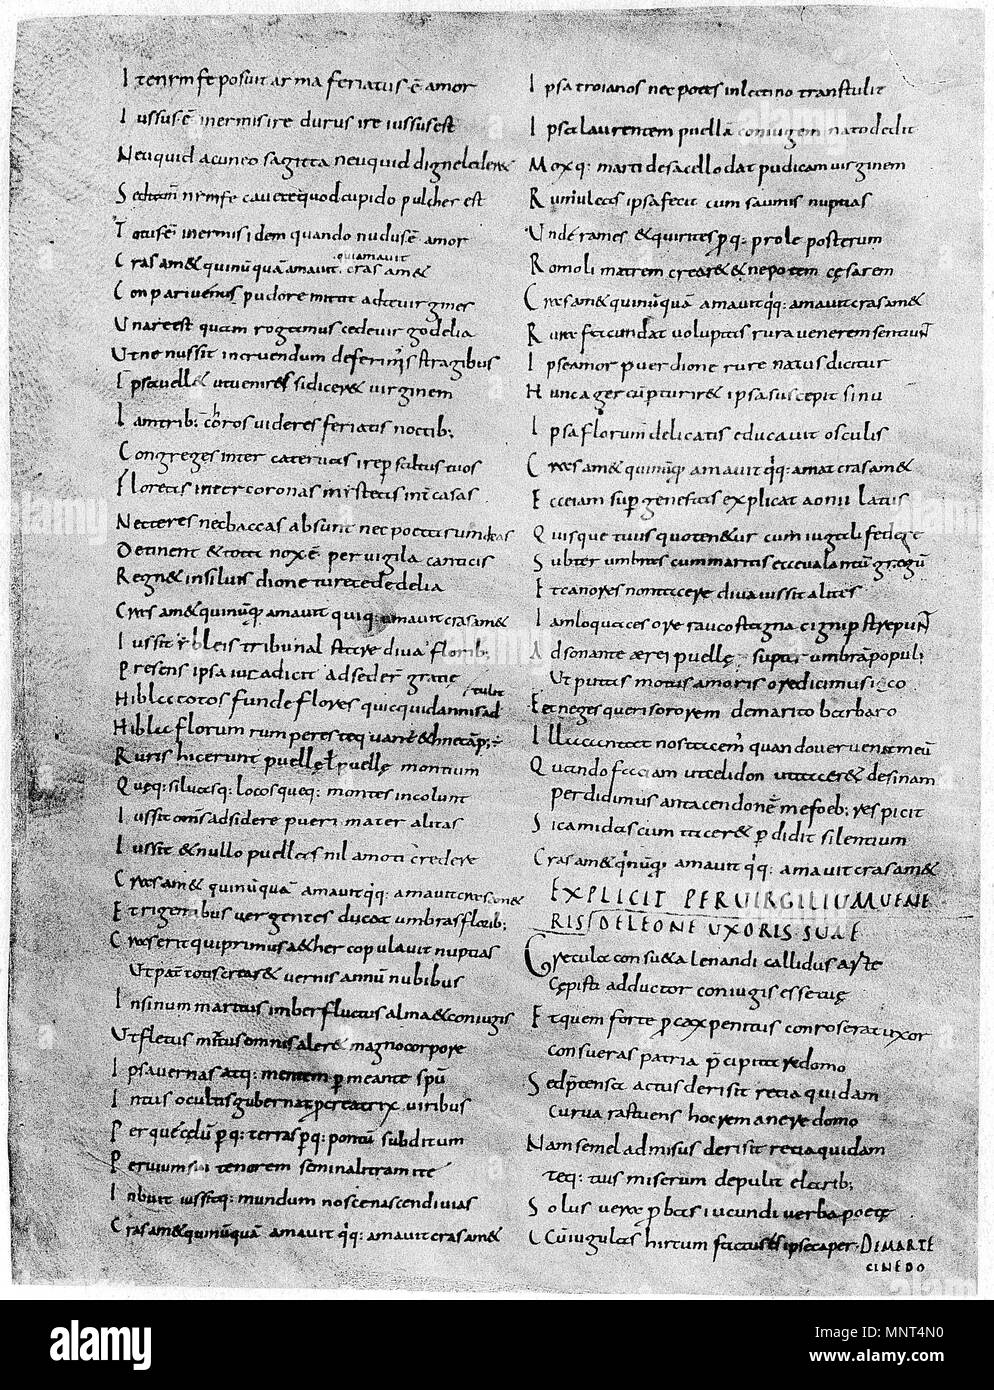 Itenimfe posuit arma feriatus ē amor
Iussus ē inermis ire durus ire iussus est
Neu quid acuneo sagitta neu quid digne lederet
Sed tam̄ nimfe cavete quod cupido pulcher est
Totus ē inermis idem quando nudus ē amor
quiamavit
Cras am& quinūquā amavit cras am&
Conpari venus pudore mittit ad te virgines
Una re est quam rogamus cede virgo delia
Ut ne nussit incruendum de ferinis stragibus
Ipsa vell& ut venires si dicer& virginem
Iam trib; choros videres feriatis noctib;
Congreges inter catervas ire p saltus tuos
Floreas inter coronas myrteas inter casas
Nec ceres nec baccas absunt nec poetas um deas
Detinent & tota nox ē per vigila canticis
Regn& in silvis dione tu recede delia
Cras am& quinūq: amavit quiq: amavit cras am&
Iussit ybleis tribunal stare diva florib;
Presens ipsa iura dicit adseder gratie
Hibla totos funde flores quicquid annis ad
tulit
Hibla florum rum peres te quant& hne camp; ē
Ruris hic erunt puelle ł puelle montium
Queq: silvas q: locos queq: montes incolunt
Iussit om̄s adsidere pueri mater alitis
Iussit & nullo puellas nil amori credere
Cras am& quinūquā amavit q̇q: amavit cras am&
Et rigentibus vergentes ducat umbras florib;
Cras erit qui primus a&her copulavit nuptias
Ut pat̄ totis crear& vernis annū nubibus
In sinum maritus imber fluctus alma& coniugis
Ut fletus mixtus omnis aler& magno corpore
Ipsa vernas atq: mentem p meante spū
Intus ocultis gubernat pcreatrix viribus
Perque cedū pq: terras pq: pontū subditum
Pervium sui tenorem seminali tramite
Inbuit iussitq: mundum nosce nascendi vias
Cras am& quinūquā amavit q̇q: amavit cras am&
Ipsa troianos nec poetas in latino transtulit
Ipsa laurentem puellā coniugem nato dedit
Moxq: marti de sacello dat pudicam virginem
Runiulecas ipsa fecit cum sauinis nuptias
Unde rames & quirites pq: prole posterum
Romoli matrem crear& & nepotem cesarem
Cras am& quinūquā amavit q̇q: amavit cras am&
Rura fecundat voluptas rura venerem sentiun̄
Ipse amor puer dione rure natus dicitur
Hunc ager cū parturir& ipsa suscepit sinu
Ipsa florum delicatis educavit osculis
Cras am& quinūq: amavit q̇q: amat cras am&
Ecce iam super genestas explicat aonii latus
Quisque tuus quo ten&ur cum iugali federe
Subter umbras cum maritis ecce valantū gregū
Et canores non tacere diva iussit alites
Iam loquaces ore rauco stagna cigni p strepun̄
Adsonante aerei puelle supter umbrā popul;
Ut putas motus amoris ore dici musico
Et neges queri sororem de marito barbaro
Illa cantat nos tacem̄ quando ver venit meū
Quando faciam ut celidon ut tacer& desinam
Perdidi musantacendo nē me foeb; respicit
Sic amidas cum tacer& p didit silentium
Cras am& q̇nūq; amavit q̇q: amavit cras am&
EXPLICIT PERVIRGILIUM VENE
RIS/ DELEONE UXORIS SUAE
Grecula consu&a lenandi callidus arte
Cepisti adductor coniugis esse tue
Et quem forte p cax penitus conroserat uxor
consueras patria p̄cipitare domo
Sed p̄tensa actus derisit retia quidam
curva rastuens hocrem anere domo
Nam semel admisus derisit retia quidam
teq: tuis miserum depulit e larib;
Solus vera p bas iucundi verba poete
CCū iugulas hirtum factus es ipse caper DEMARTE
CINEDO